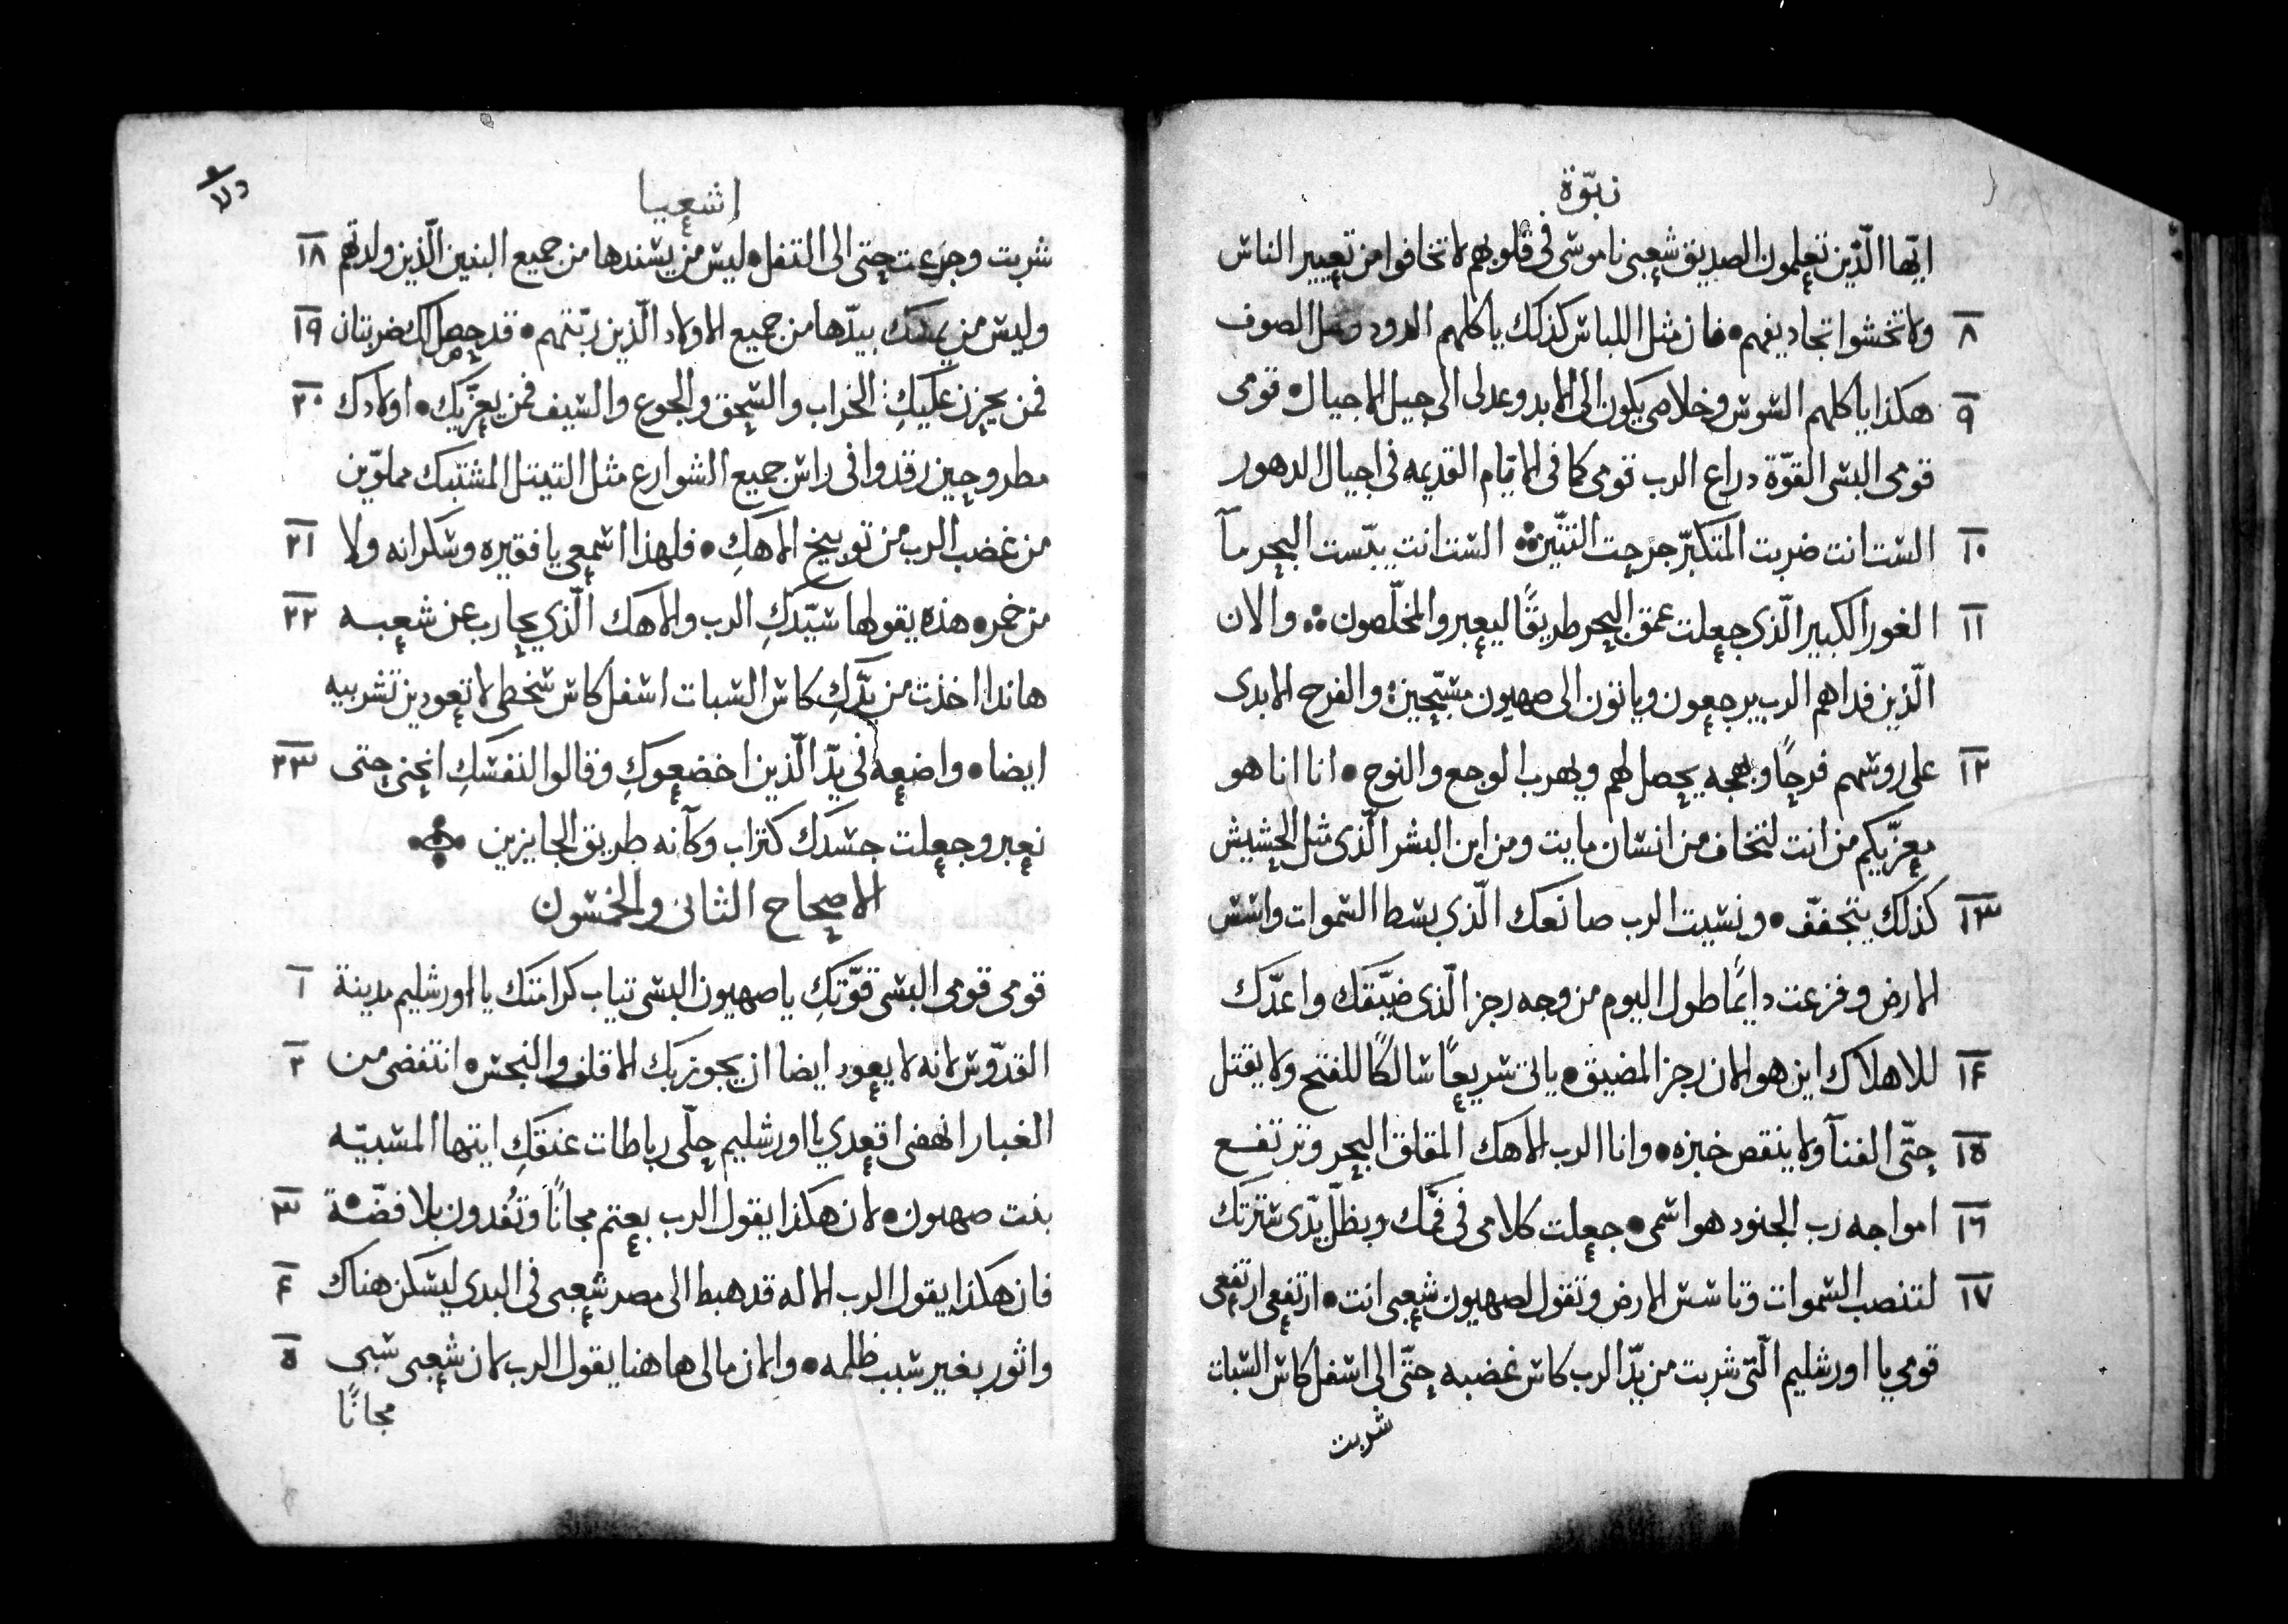 نبوّة
ايّها الّذين تعلمون الصديق شعبى ناموسى فى قلوبهم لا تخافوا من تعيير الناس
٨ ولا تخشوا تجاديفهم • فان مثل اللباس كذلك ياكلهم الدود ومثل الصوف
٩ هكذا ياكلهم السوس وخلاصى يكون الى الابد وعدلى الى جيل الاجيال • قومى
قومى البسى القوّة دراع الرب قومى كما فى الايّام القديمه فى اجيال الدهور
١٠ الست انت ضربت المتكبّر جرحت التنّين ⁘ الست انت يبّست البحر مآ
١١ الغور الكبير الّذى جعلت عمق البحر طريقًا ليعبر والمخلّصون ⁘ والان
الّذين فداهم الرب يرجعون وياتون الى صهيون مسبّحين والفرح الابدى
١٢ على روسهم فرحًا وبهجه يحصل لهم ويهرب الوجع والنوح • انا انا هو
معزّيكم من انت لتخاف من انسان مايت ومن ابن البشر الّذى مثل الحشيش
١٣ كذلك يتجفّف • ونسيت الرب صانعك الّذى بسط السموات واسس
الارض وفزعت دايمًا طول اليوم من وجه رجز الّذى ضيّقك واعدّك
١٤ للاهلاك اين هو الان رجز المضيق • ياتى سريعًا سالكًا للفتح ولا يقتل
١٥ حتّى الفنآ ولا ينقص خبزه • وانا الرب الاهك المقلق البحر وترتفع
١٦ امواجه رب الجنود هو اسمى • جعلت كلامى فى فمّك وبظلّ يدّى سترتك
١٧ لتنصب السموات وتاسس الارض وتقول لصهيون شعبى انت • ارتفعى ارتفعى
قومي يا اورشليم الّتى شربت من يدّ الرب كاس غضبه حتّى الى اسفل كاس السبات
شربت
اشعيا
شربت وجرعت حتى الى التفل • ليس من يسندها من جميع البنين الّذين ولدتهم ١٨
وليس من يمسك بيدّها من جميع الاولاد الّذين ربّتهم • قد حصل لك ضربتان ١٩
فمن يحزن عليكِ الخراب والسحق والجوع والسيف فمن يعزّيك • اولادك ٢٠
مطروحين رقدوا فى راس جميع الشوارع مثل التيتل المشتبك مملوّين
من غضب الرب من توبيخ الاهكِ • فلهذا اسمعى يا فقيره وسكرانه ولا ٢١
من خمر • هذه يقولها سيّدكِ الرب والاهك الّذي يحارب عن شعبه ٢٢
هاندا اخذت من يدّكِ كاس السبات اسفل كاس سخطى لا تعودين تشربيه
ايضا • واضعه فى يدّ الّذين اخضعوكِ وقالوا لنفسكِ انحنى حتى ٢٣
نعبر وجعلت جسدك كتراب وكآنه طريق الجايزين
الاصحاح الثانى والخمسون
قومى قومى البسى قوّتكِ يا صهيون البسى تياب كرامتك يا اورشليم مدينة ١
القدّوس لانه لا يعود ايضا ان يجوز بك الاقلف والنجس • انتفضى من ٢
الغبار انهضى اقعدي يا اورشليم حلّى رباطات عنقكِ ايتها المسبيّه
بنت صهيون • لان هكذا يقول الرب بعتم مجانًا وتُفدون بلا فضّة ٣
فان هكذا يقول الرب الاله قد هبط الى مصر شعبى فى البدي ليسكن هناك ٤
واثور بغير سبب ظلمه • والان مالى هاهنا يقول الرب لان شعبى سبى ٥
مجانًا